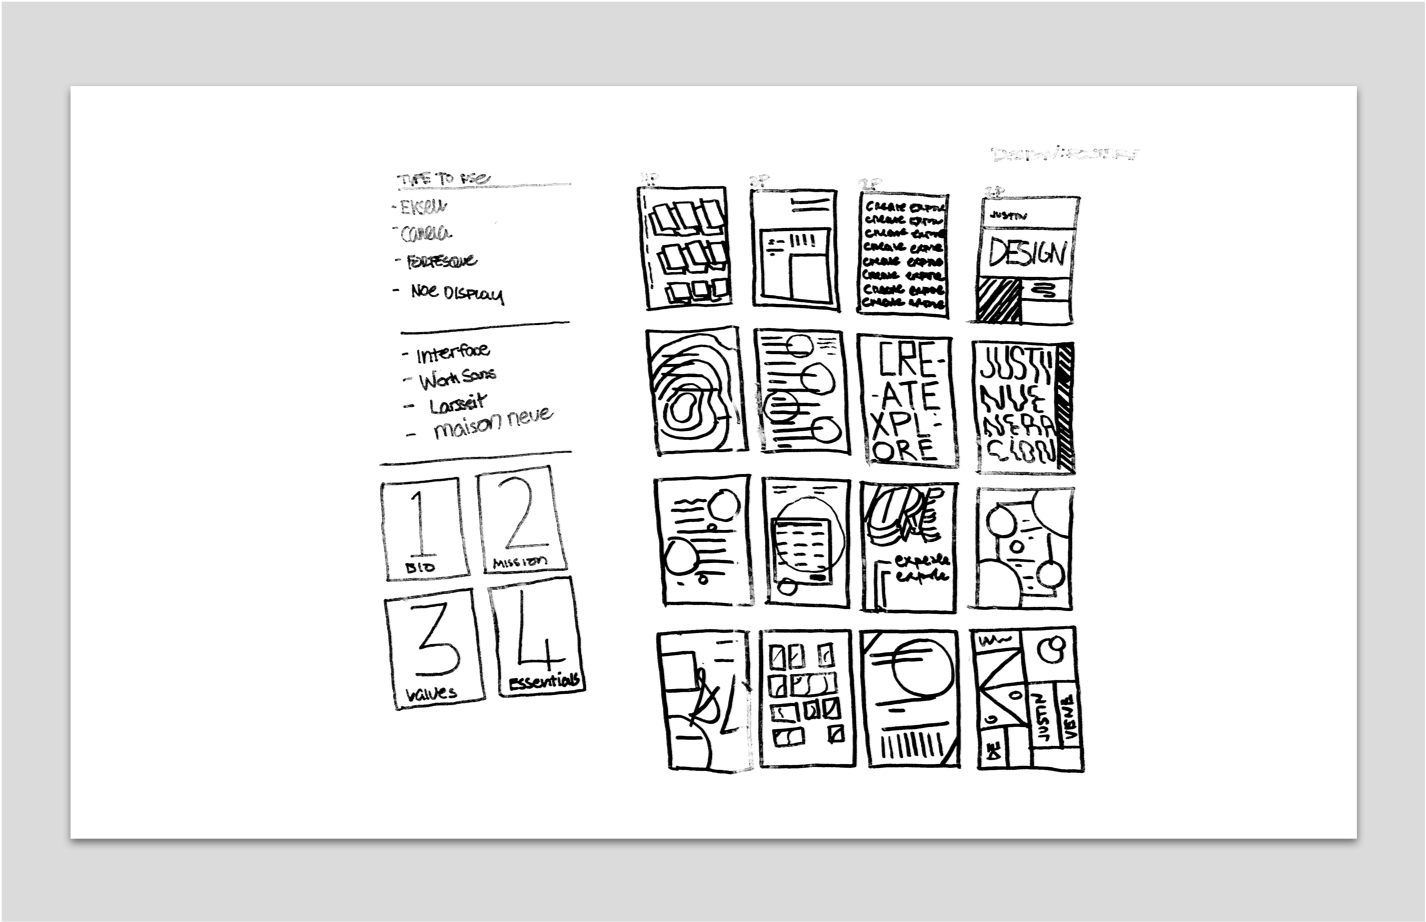 TYPE TO USE
- EKSELL
- Canela
- FORTESQUE
- NOE DISPLAY
- Interface
- Work Sans
- Larsseit
- maison neue
1
BIO
2
MISSION
3
Values
4
Essentials
1P
2P
2P
CREATE EXPLRE
CREATE EXPLRE
CREATE EXPLRE
CREATE EXPLRE
CREATE EXPLRE
CREATE EXPLRE
CREATE EXPLRE
CREATE EXPLRE
JUSTIN
DESIGN
CRE-
-ATE
XPL-
ORE
JUSTN
NUE
NERA
CION
explre
explre
JUSTIN
VENE
DE